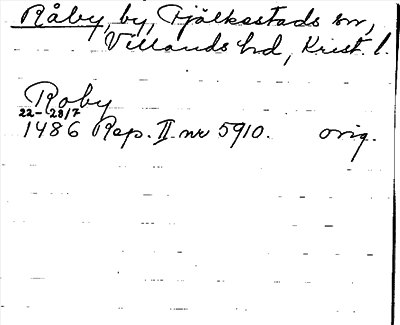 Råby, by, Fjälkestads sn,
Villands hd, Krist. l.
Roby
22-28/7
1486 Rep. II nr 5910. orig.